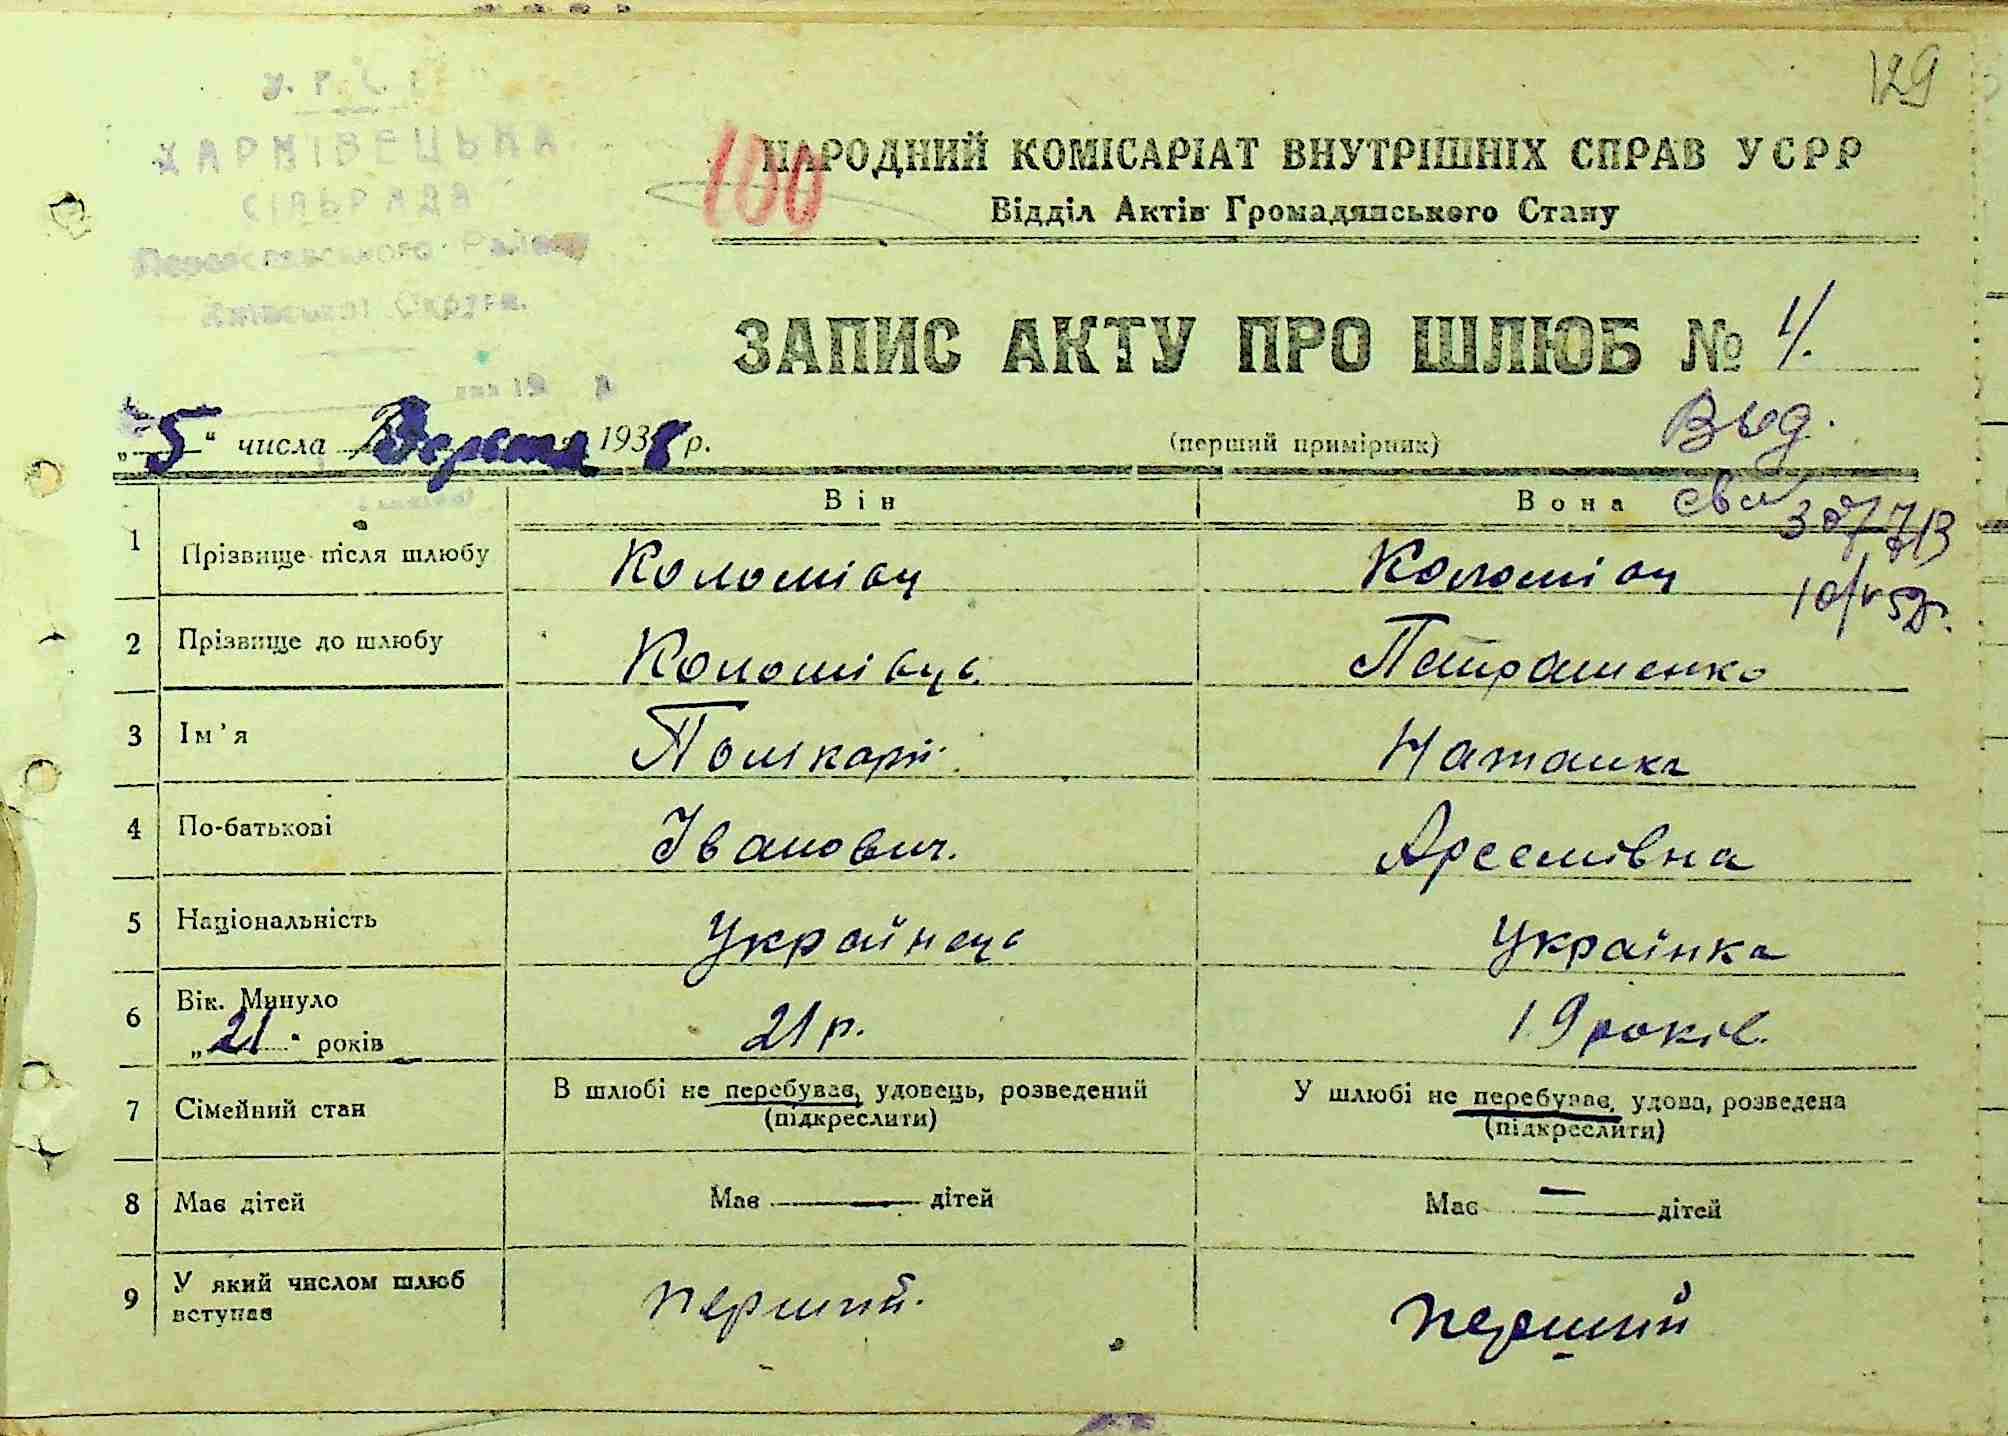 129
У.Р.С.Р.
ХАРКІВЕЦЬКА
СІЛЬРАДА
Переяславського Району
Київської Округи.
100
НАРОДНИЙ КОМІСАРІАТ ВНУТРІШНІХ СПРАВ УСРР
Відділ Актів Громадянського Стану
ЗАПИС АКТУ ПРО ШЛЮБ №
„5" числа 1938 р.
(перший примірник)
Выд.
Він Вона
1 Прізвище після шлюбу Коломієц Коломієц
2 Прізвище до шлюбу Коломієць Петрашенко
3 Ім'я Полікарп Наташка
4 По-батькові Іванович. Арсемівна
5 Національність Українець Українка
6 Вік. Минуло
„21" років 21 р. 19 років.
7 Сімейний стан В шлюбі не перебував, удовець, розведений У шлюбі не перебував, удова, розведена
(підкреслити) (підкреслити)
8 Має дітей Має — дітей Має — дітей
9 У який числом шлюб
вступав перший. перший